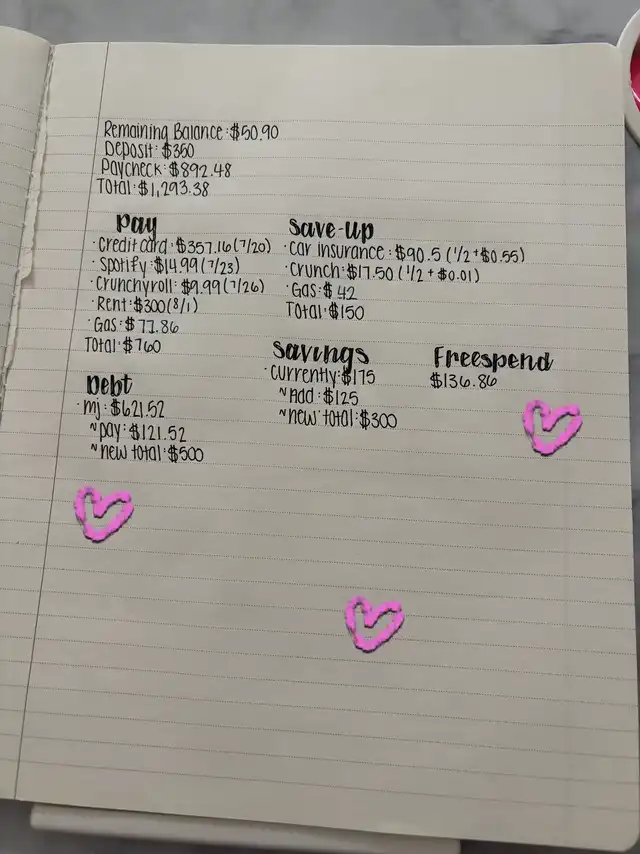 Remaining Balance: $50.90
Deposit: $350
Paycheck: $892.48
Total: $1,293.38
Pay
· Credit card: $357.16 (7/20)
· Spotify: $14.99 (7/23)
· Crunchyroll: $9.99 (7/26)
· Rent: $300 (8/1)
· Gas: $77.86
Total: $760
Save-Up
· Car insurance: $90.5 (1/2 + $0.55)
· Crunch: $17.50 (1/2 + $0.01)
· Gas: $42
Total: $150
Debt
· mj: $621.52
~ pay: $121.52
~ new total: $500
Savings
· Currently: $175
~ Add: $125
~ new total: $300
Freespend
$136.86